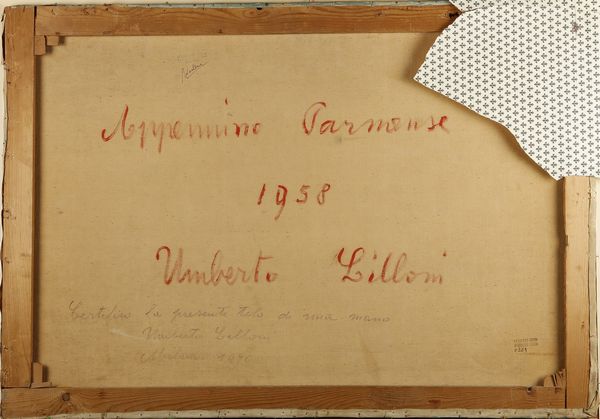 Appennino Parmense
1958
Umberto Lilloni
Certifico la presente tela di mia mano
Umberto Lilloni
Milano